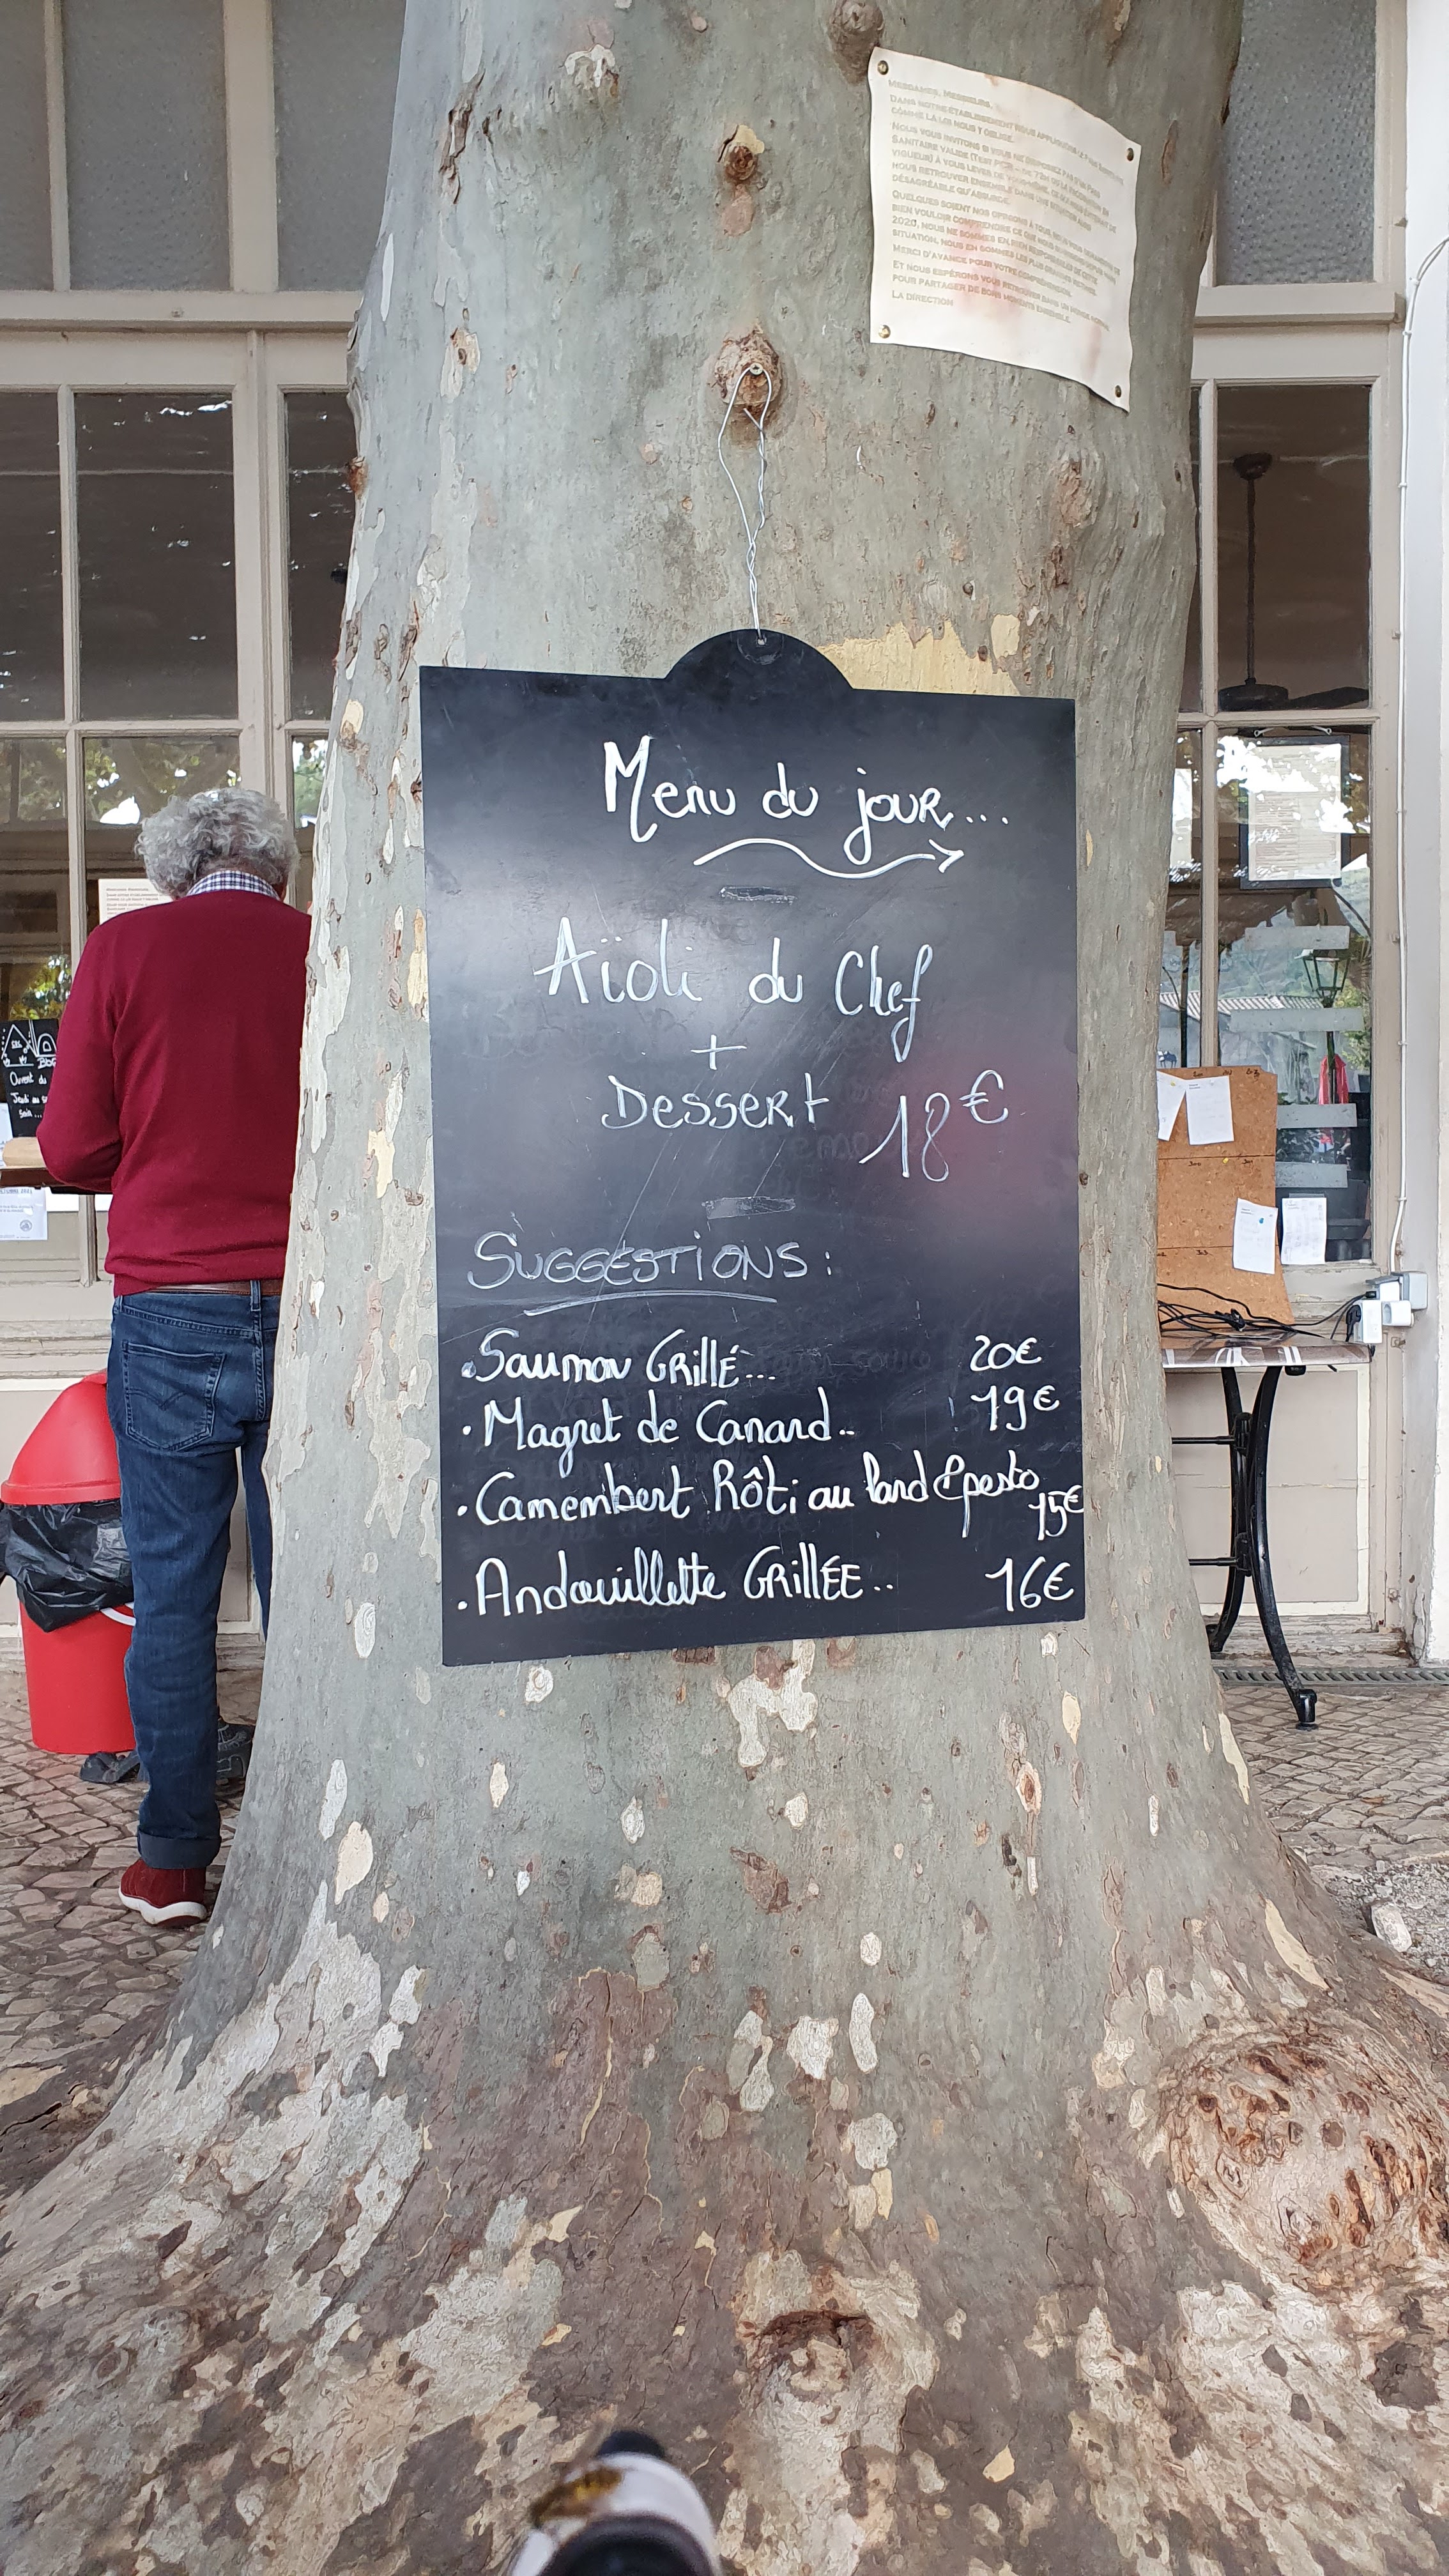 Messames, Messieurs,
Dans notre établissement nous appliquons le Pass Sanitaire
comme la loi nous y oblige.
Nous vous invitons si vous ne disposez pas d'un Pass
Sanitaire valide (Test PCR
vigueur) à vous lever de
nous retrouver ensemble dans une situation aussi
désagréable qu'absurde.
Quelques soient nos opinions à tous, nous vous
bien vouloir comprendre ce que nous
2020, nous ne sommes en rien responsables de cette
situation, nous en sommes les plus grandes victimes.
Merci d'avance pour votre compréhension.
Et nous espérons vous retrouver dans un monde
pour partager de bons moments ensemble.
La Direction
Menu du jour...
Aïoli du Chef
+
Dessert 18€
Suggestions :
.Saumon Grillé... 20€
. Magret de Canard.. 19€
. Camembert Rôti au lard & pesto
15€
. Andouillette Grillée.. 16€
Ouvert du
Jeudi au